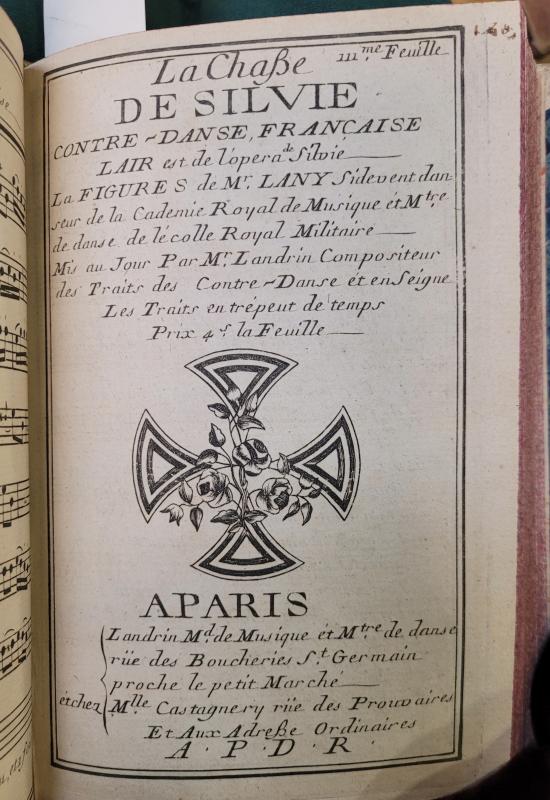 111.me Feuille
La Chaße
DE SILVIE
CONTRE~DANSE, FRANÇAISE
LAIR est de lópera de Silvie
La FIGURES de Mr. LANY Sidevent dan-
seur de la Cademie Royal de Musique ét Mtre.
de danse de lécolle Royal Militaire
Mis au Jour Par Mr. Landrin Compositeur
des Traits des Contre~Danse et enSeigne
Les Traits en trépeut de temps
Prix 4s. la Feuille
APARIS
Landrin Md. de Musique ét Mtre. de danse
rüe des Boucheries St. Germain
proche le petit Marché
ét chez Mlle Castagnery rüe des Prouvaires
Et Aux Adreße Ordinaires
A. P. D. R.